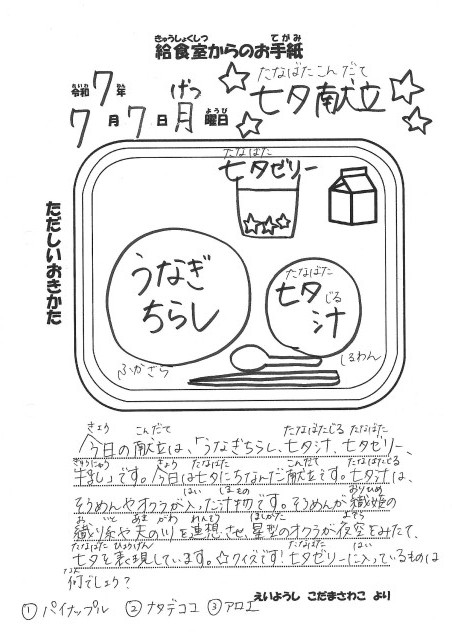 きゅうしょくしつ てがみ
給食室からのお手紙
たなばたこんだて
七夕献立
れいわ ねん
令和7年
げつ ようび
7月7日月曜日
ただしいおきかた
たなばた
七夕ゼリー
うなぎ
ちらし
たなばた
七夕
じる
汁
ふかざら
しるわん
きょう こんだて たなばたじる たなばた
今日の献立は、「うなぎちらし、七夕汁、七夕ゼリー、
ぎゅうにゅう きょう たなばた こんだて たなばたじる
牛乳」です。今日は七夕にちなんだ献立です。七夕汁は、
はい しるもの おりひめ
そうめんやオクラが入った汁物です。そうめんが織姫の
お いと あま がわ れんそう ほしがた よぞら
織り糸や天の川を連想させ、星型のオクラが夜空をみたて、
たなばた ひょうげん たなばた はい
七夕を表現しています。☆クイズです！七夕ゼリーに入っているものは
なん
何でしょう？
① パイナップル ② ナタデココ ③ アロエ
えいようし こだまさわこ より